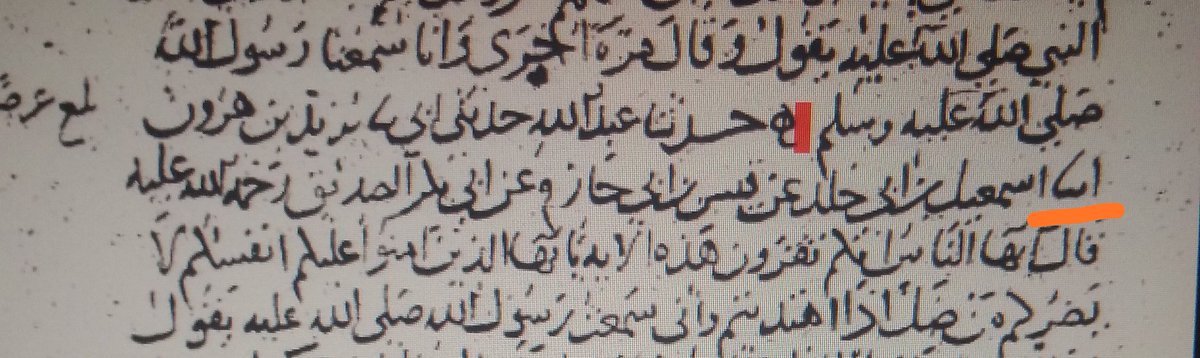 النبي صلى الله عليه يقول وقال مرة اخرى وانا سمعنا رسول الله
صلى الله عليه وسلم ه حدثنا عبد الله حدثني ابي ثنا يزيد بن هرون
انا اسمعيل بن ابي خلد عن قيس بن ابي حازم عن ابي بكر الصديق رحمه الله عليه
قال يايها الناس انكم تقرون هذه الاية يايها الذين امنوا عليكم انفسكم لا
يضركم من ضل اذا اهتديتم واني سمعت رسول الله صلى الله عليه يقول